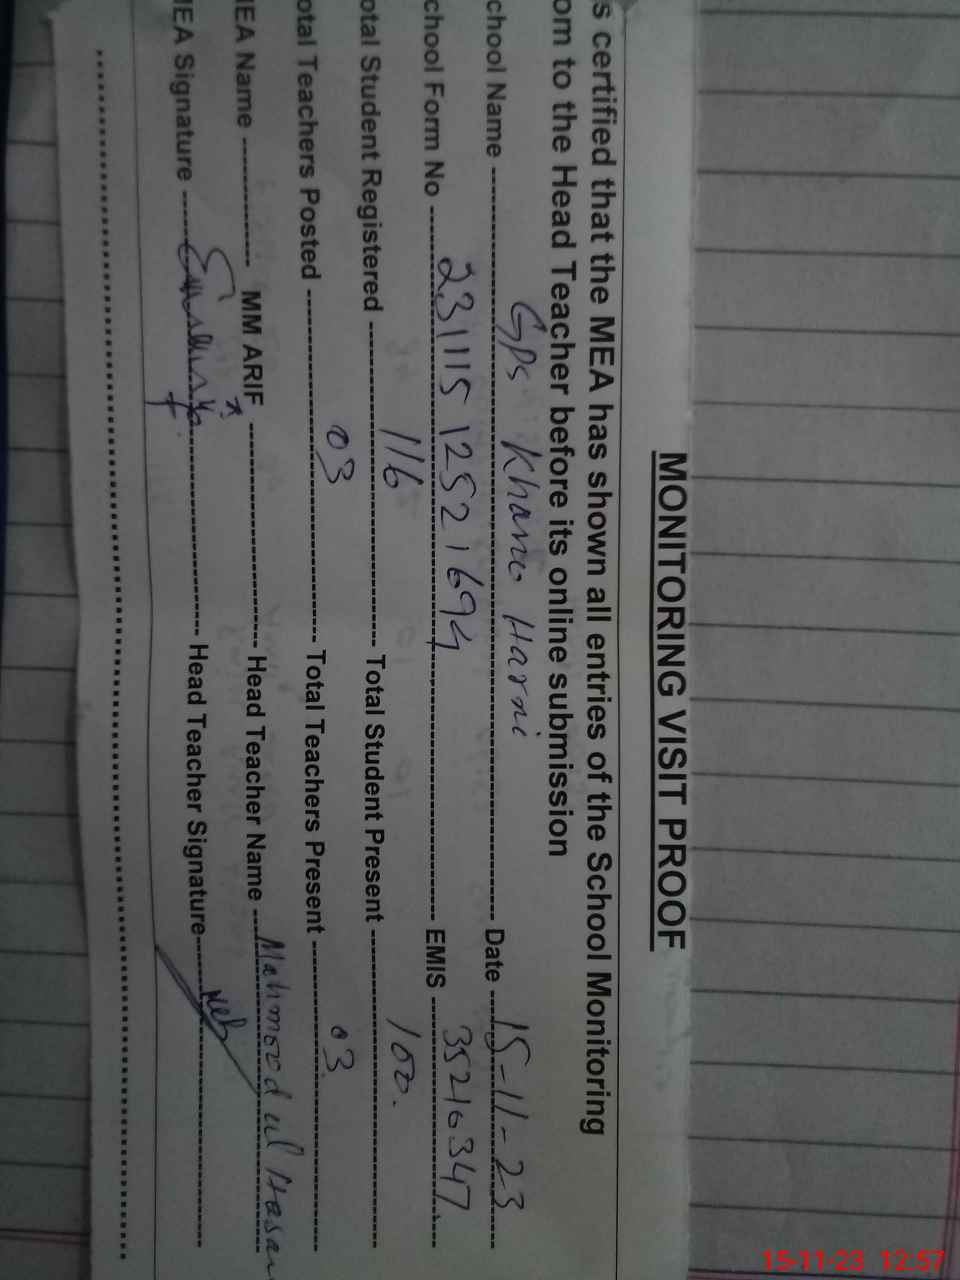 MONITORING VISIT PROOF
s certified that the MEA has shown all entries of the School Monitoring
om to the Head Teacher before its online submission
chool Name Gps Khano Harni Date 15-11-23
chool Form No 231115 1252 1694 EMIS 35210347
otal Student Registered 116 Total Student Present 100.
otal Teachers Posted 03 Total Teachers Present 03
IEA Name MM ARIF Head Teacher Name Mahmood ul Hasan
IEA Signature Head Teacher Signature
15-11-23 12:57